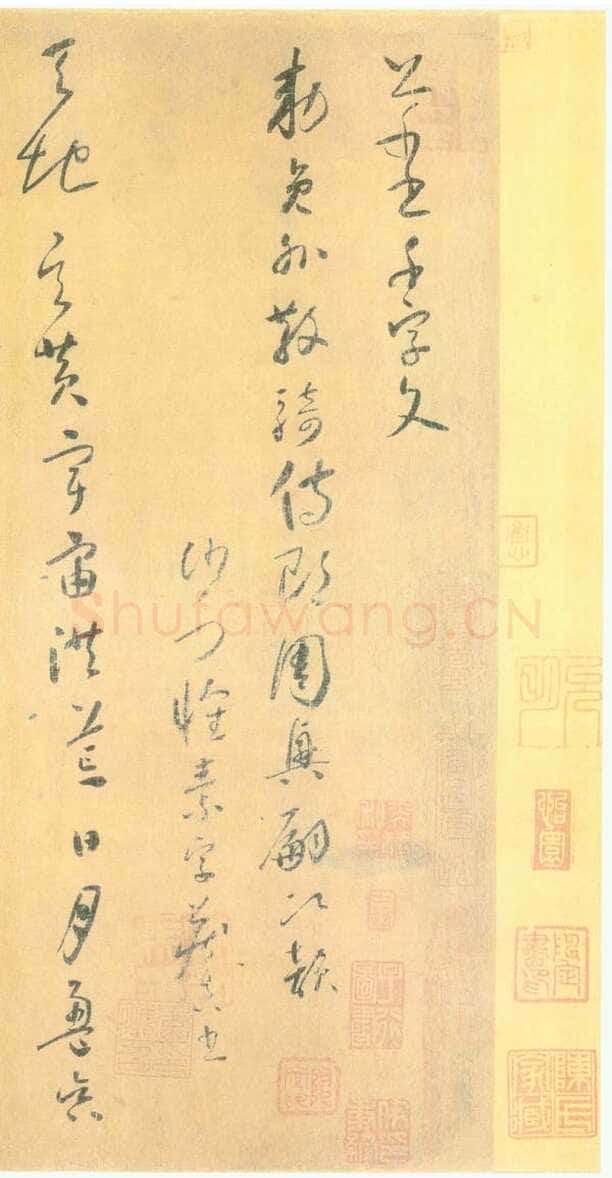 草書千字文
勅員外散騎侍郎周興嗣次韻
沙門懷素字藏真書
天地玄黃宇宙洪荒日月盈昃
Shufawang.CN